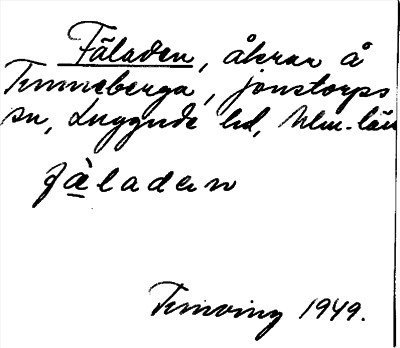 Fäladen, åkrar å
Tunneberga, Jonstorps
sn, Luggude hd, Mlm. län
fä̀ladan
1949.